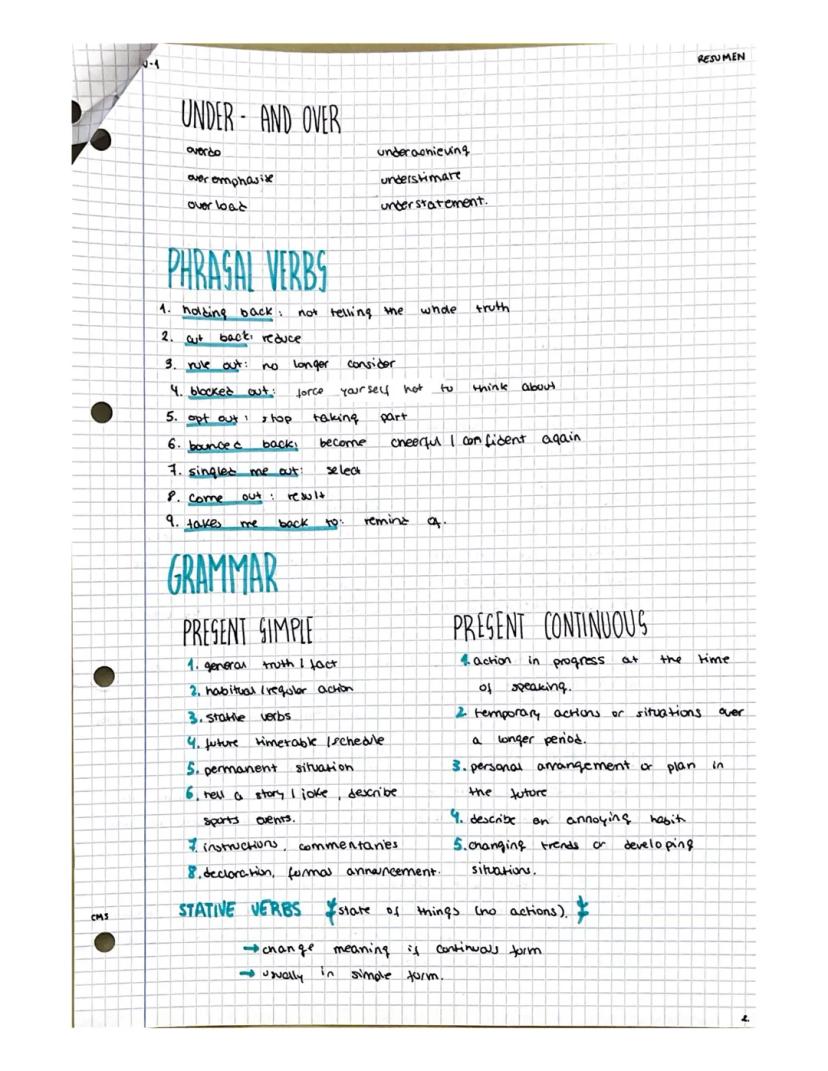 U-1
RESUMEN
UNDER - AND OVER
overdo underachieving
over emphasize understimate
over load understatement.
PHRASAL VERBS
1. holding back: not telling the whole truth
2. cut back: reduce
3. rule out: no longer consider
4. blocked out: force yourself not to think about
5. opt out: stop taking part
6. bounced back: become cheerful / confident again
7. singled me out: select
8. come out: result
9. takes me back to: remind of.
GRAMMAR
PRESENT SIMPLE
1. general truth / fact
2. habitual / regular action
3. stative verbs
4. future timetable / schedule
5. permanent situation
6. tell a story / joke, describe
sports events.
7. instructions, commentaries
8. declaration, formal announcement.
PRESENT CONTINUOUS
1. action in progress at the time
of speaking.
2 temporary actions or situations over
a longer period.
3. personal arrangement or plan in
the future
4. describe an annoying habit
5. changing trends or developing
situations.
STATIVE VERBS state of things (no actions).
→ change meaning if continuous form
→ usually in simple form.
CMS
2.